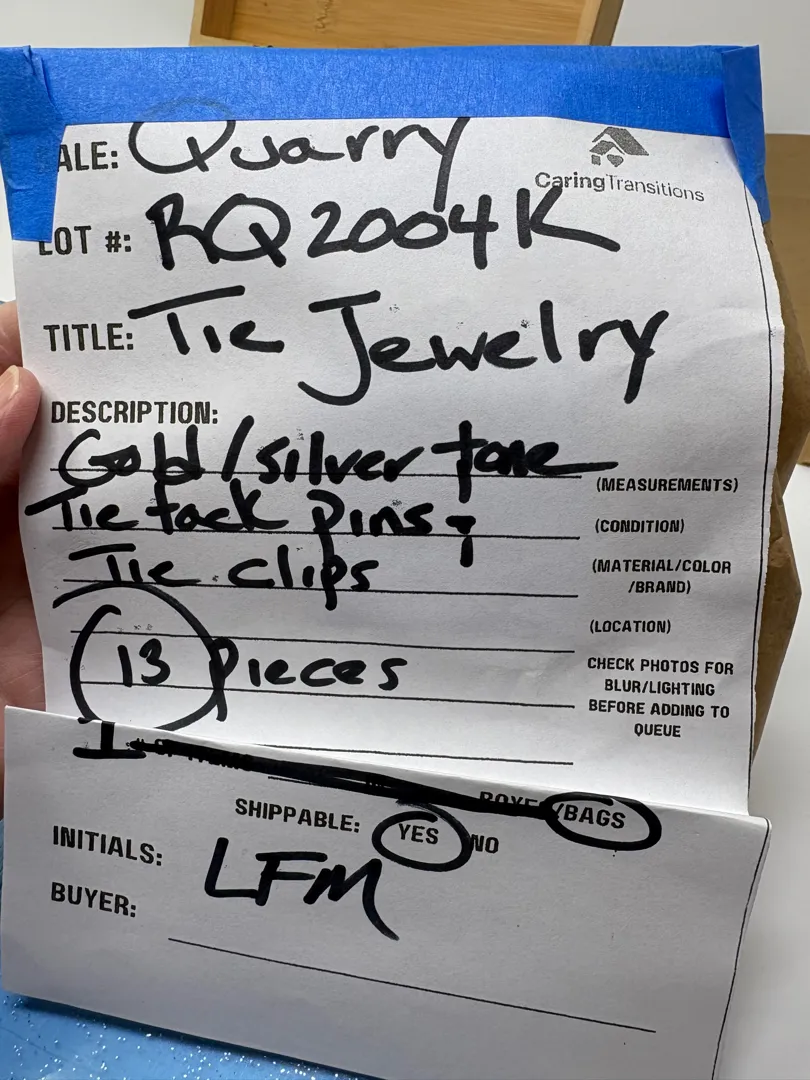 ALE: Quarry
CaringTransitions
LOT #: RQ2004K
TITLE: Tie Jewelry
DESCRIPTION:
Gold/silver tone
(MEASUREMENTS)
Tie tack pins;
(CONDITION)
Tie clips
(MATERIAL/COLOR
/BRAND)
(LOCATION)
13 pieces
CHECK PHOTOS FOR
BLUR/LIGHTING
BEFORE ADDING TO
QUEUE
1
/BAGS
SHIPPABLE: YES NO
INITIALS: LFM
BUYER: